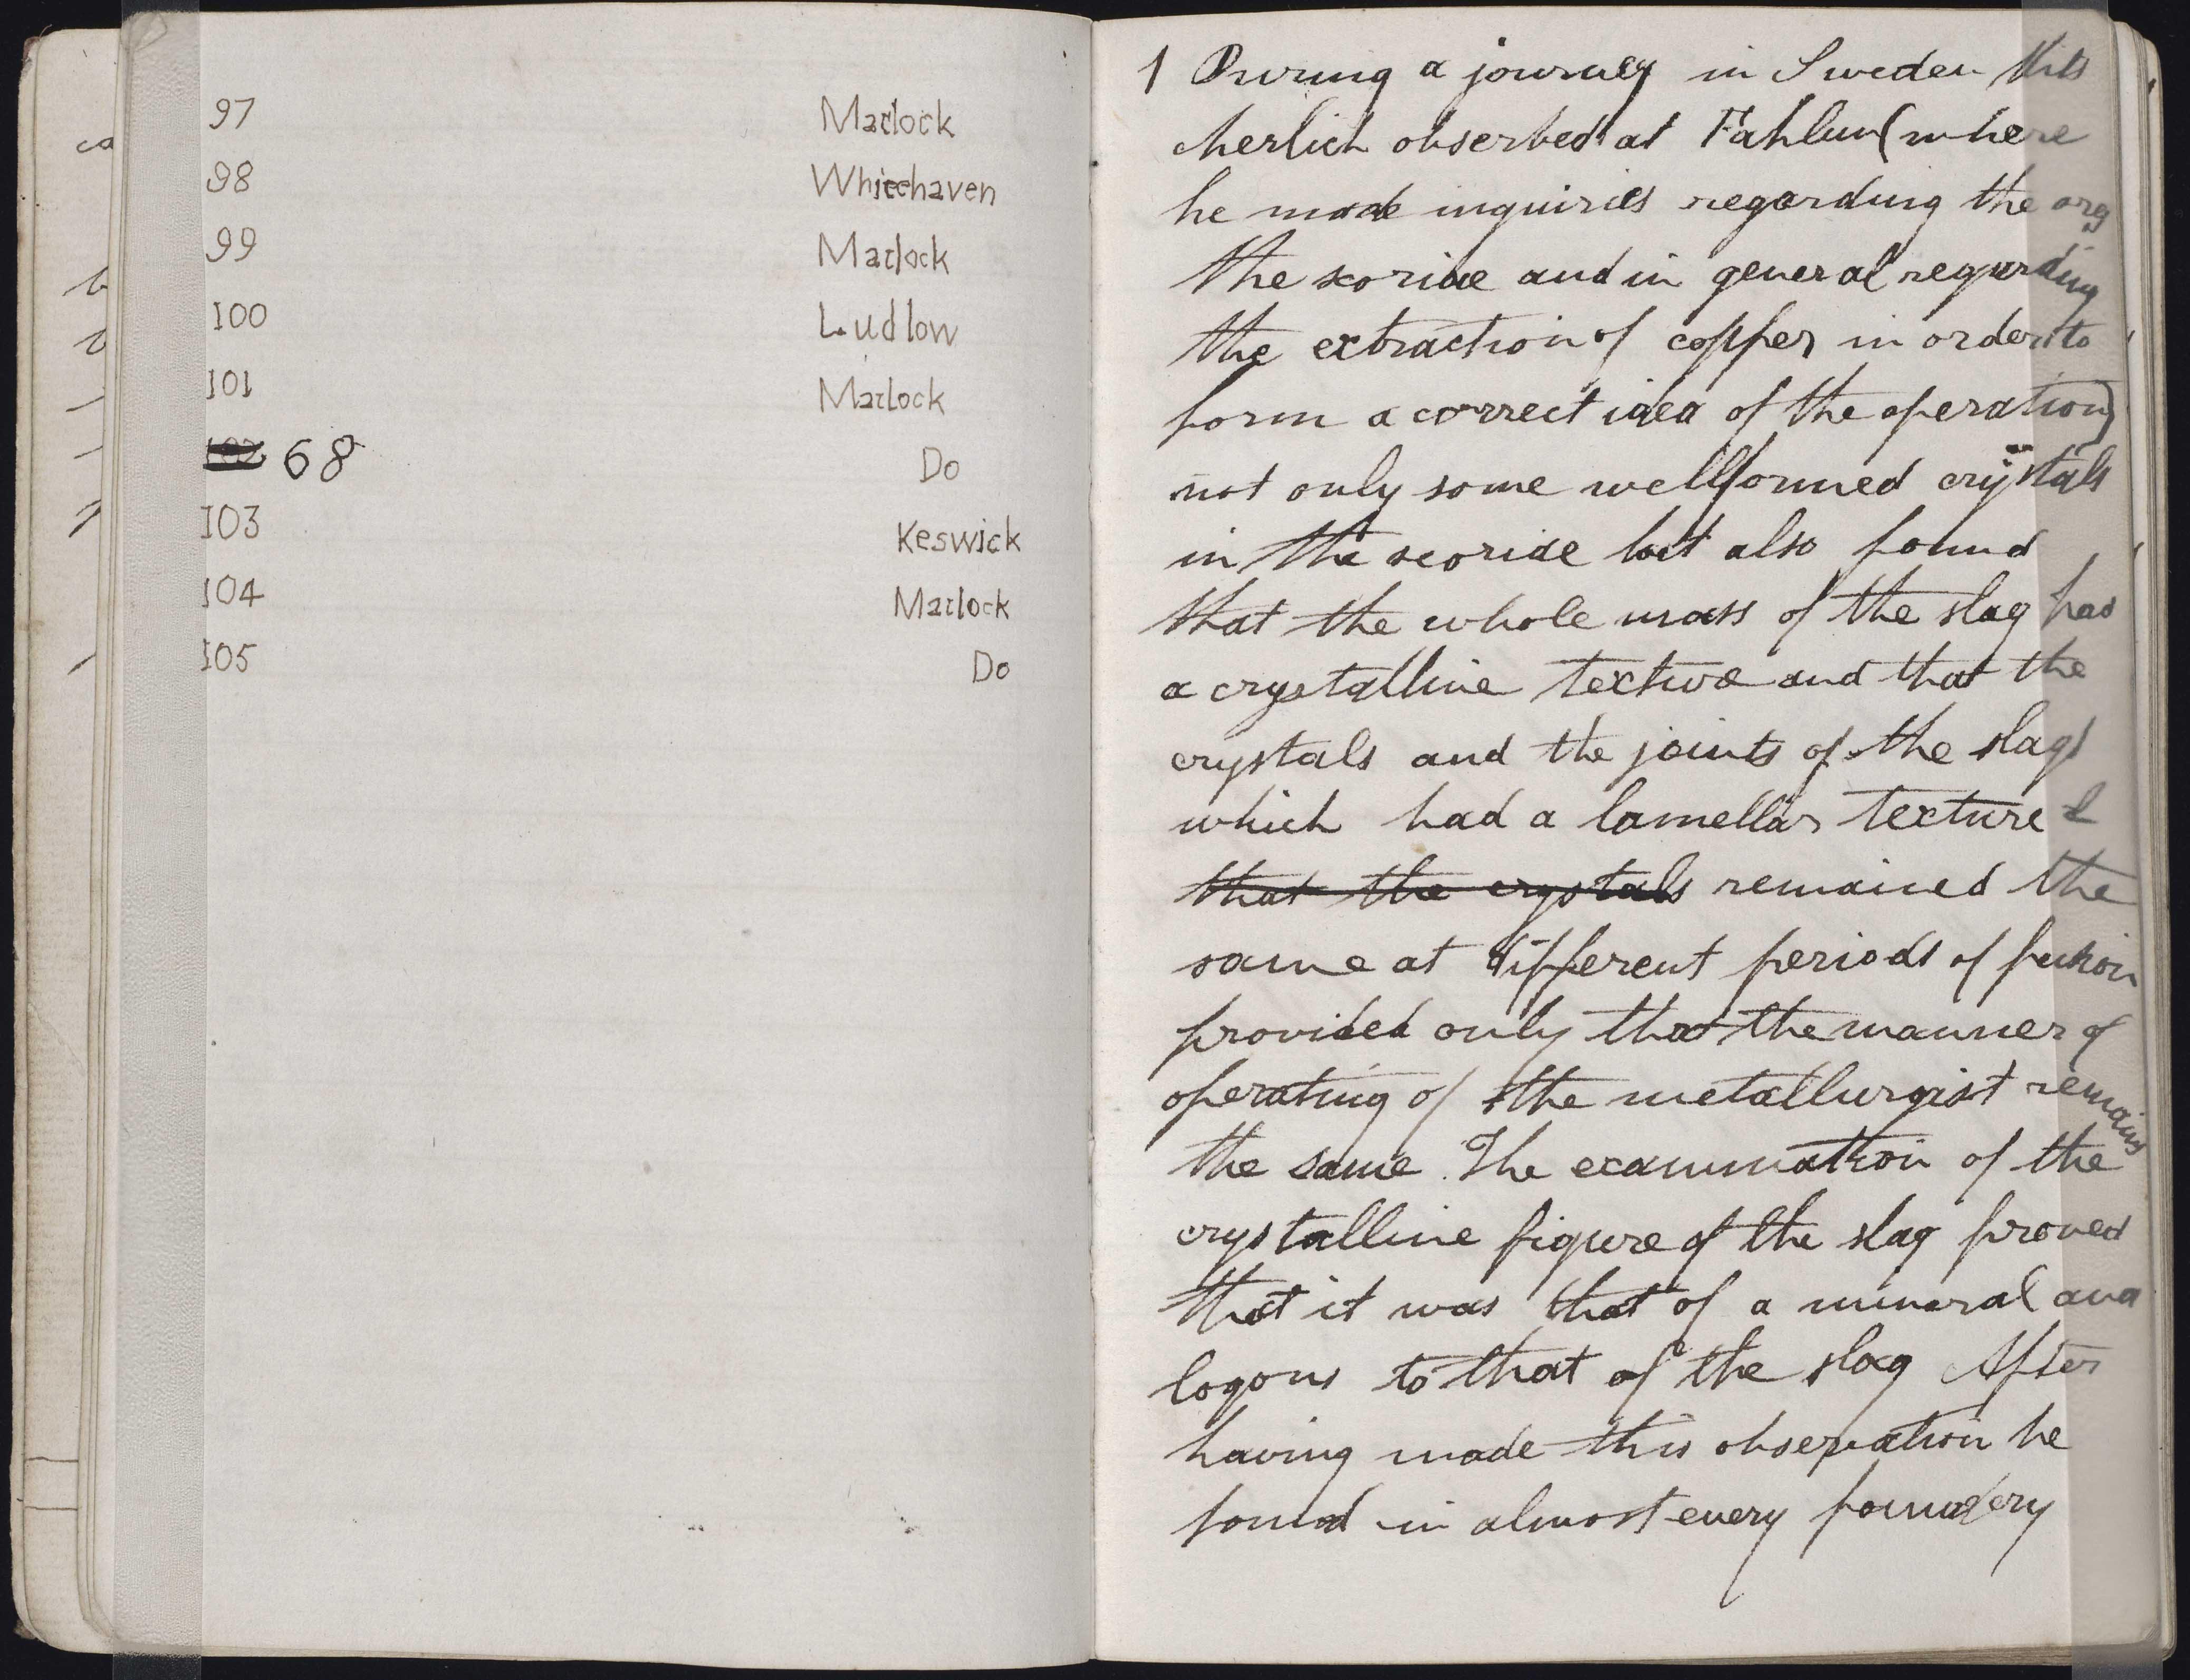 97 Matlock
98 Whitehaven
99 Matlock
100 Ludlow
101 Matlock
102 68 Do
103 Keswick
104 Matlock
105 Do
1 During a journey in Sweden Mits
cherlich observed at Fahlun (where
he made inquiries regarding the
the scoriae and in general regarding
the extraction of copper in order to
form a correct idea of the operation)
not only some wellformed crystals
in the scoriae but also found
that the whole mass of the slag had
a crystalline texture and that the
crystals and the joints of the slags
which had a lamellar texture &
that the crystals remained the
same at different periods of fusion
provided only that the manner of
operating of the metallurgist remains
the same. The examination of the
crystalline figure of the slag proved
that it was that of a mineral ana
logous to that of the slag After
having made this observation he
found in almost every foundery